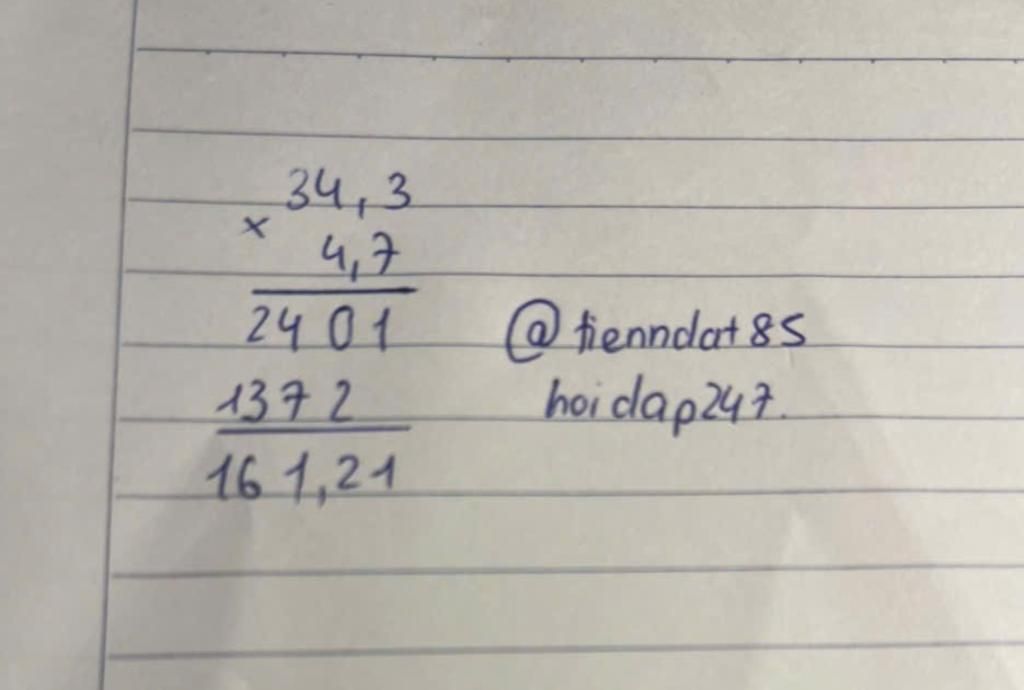 34,3
×
4,7
2401
1372
161,21
@tienndat85
hoidap247.